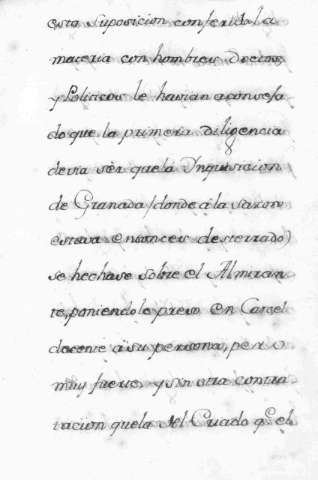 esta suposicion conferida la
materia con hombres Doctos,
y Politicos le havian aconseja
do que la primera diligencia
devia sèr que la Inquisicion
de Granada (donde à la sazon
estava entonces desterrado)
se hechase sobre el Almiran
te, poniendole preso en Carcel
decente à su persona, pero
muy fuerte, y sin otra contra
tacion que la del Criado q.e el